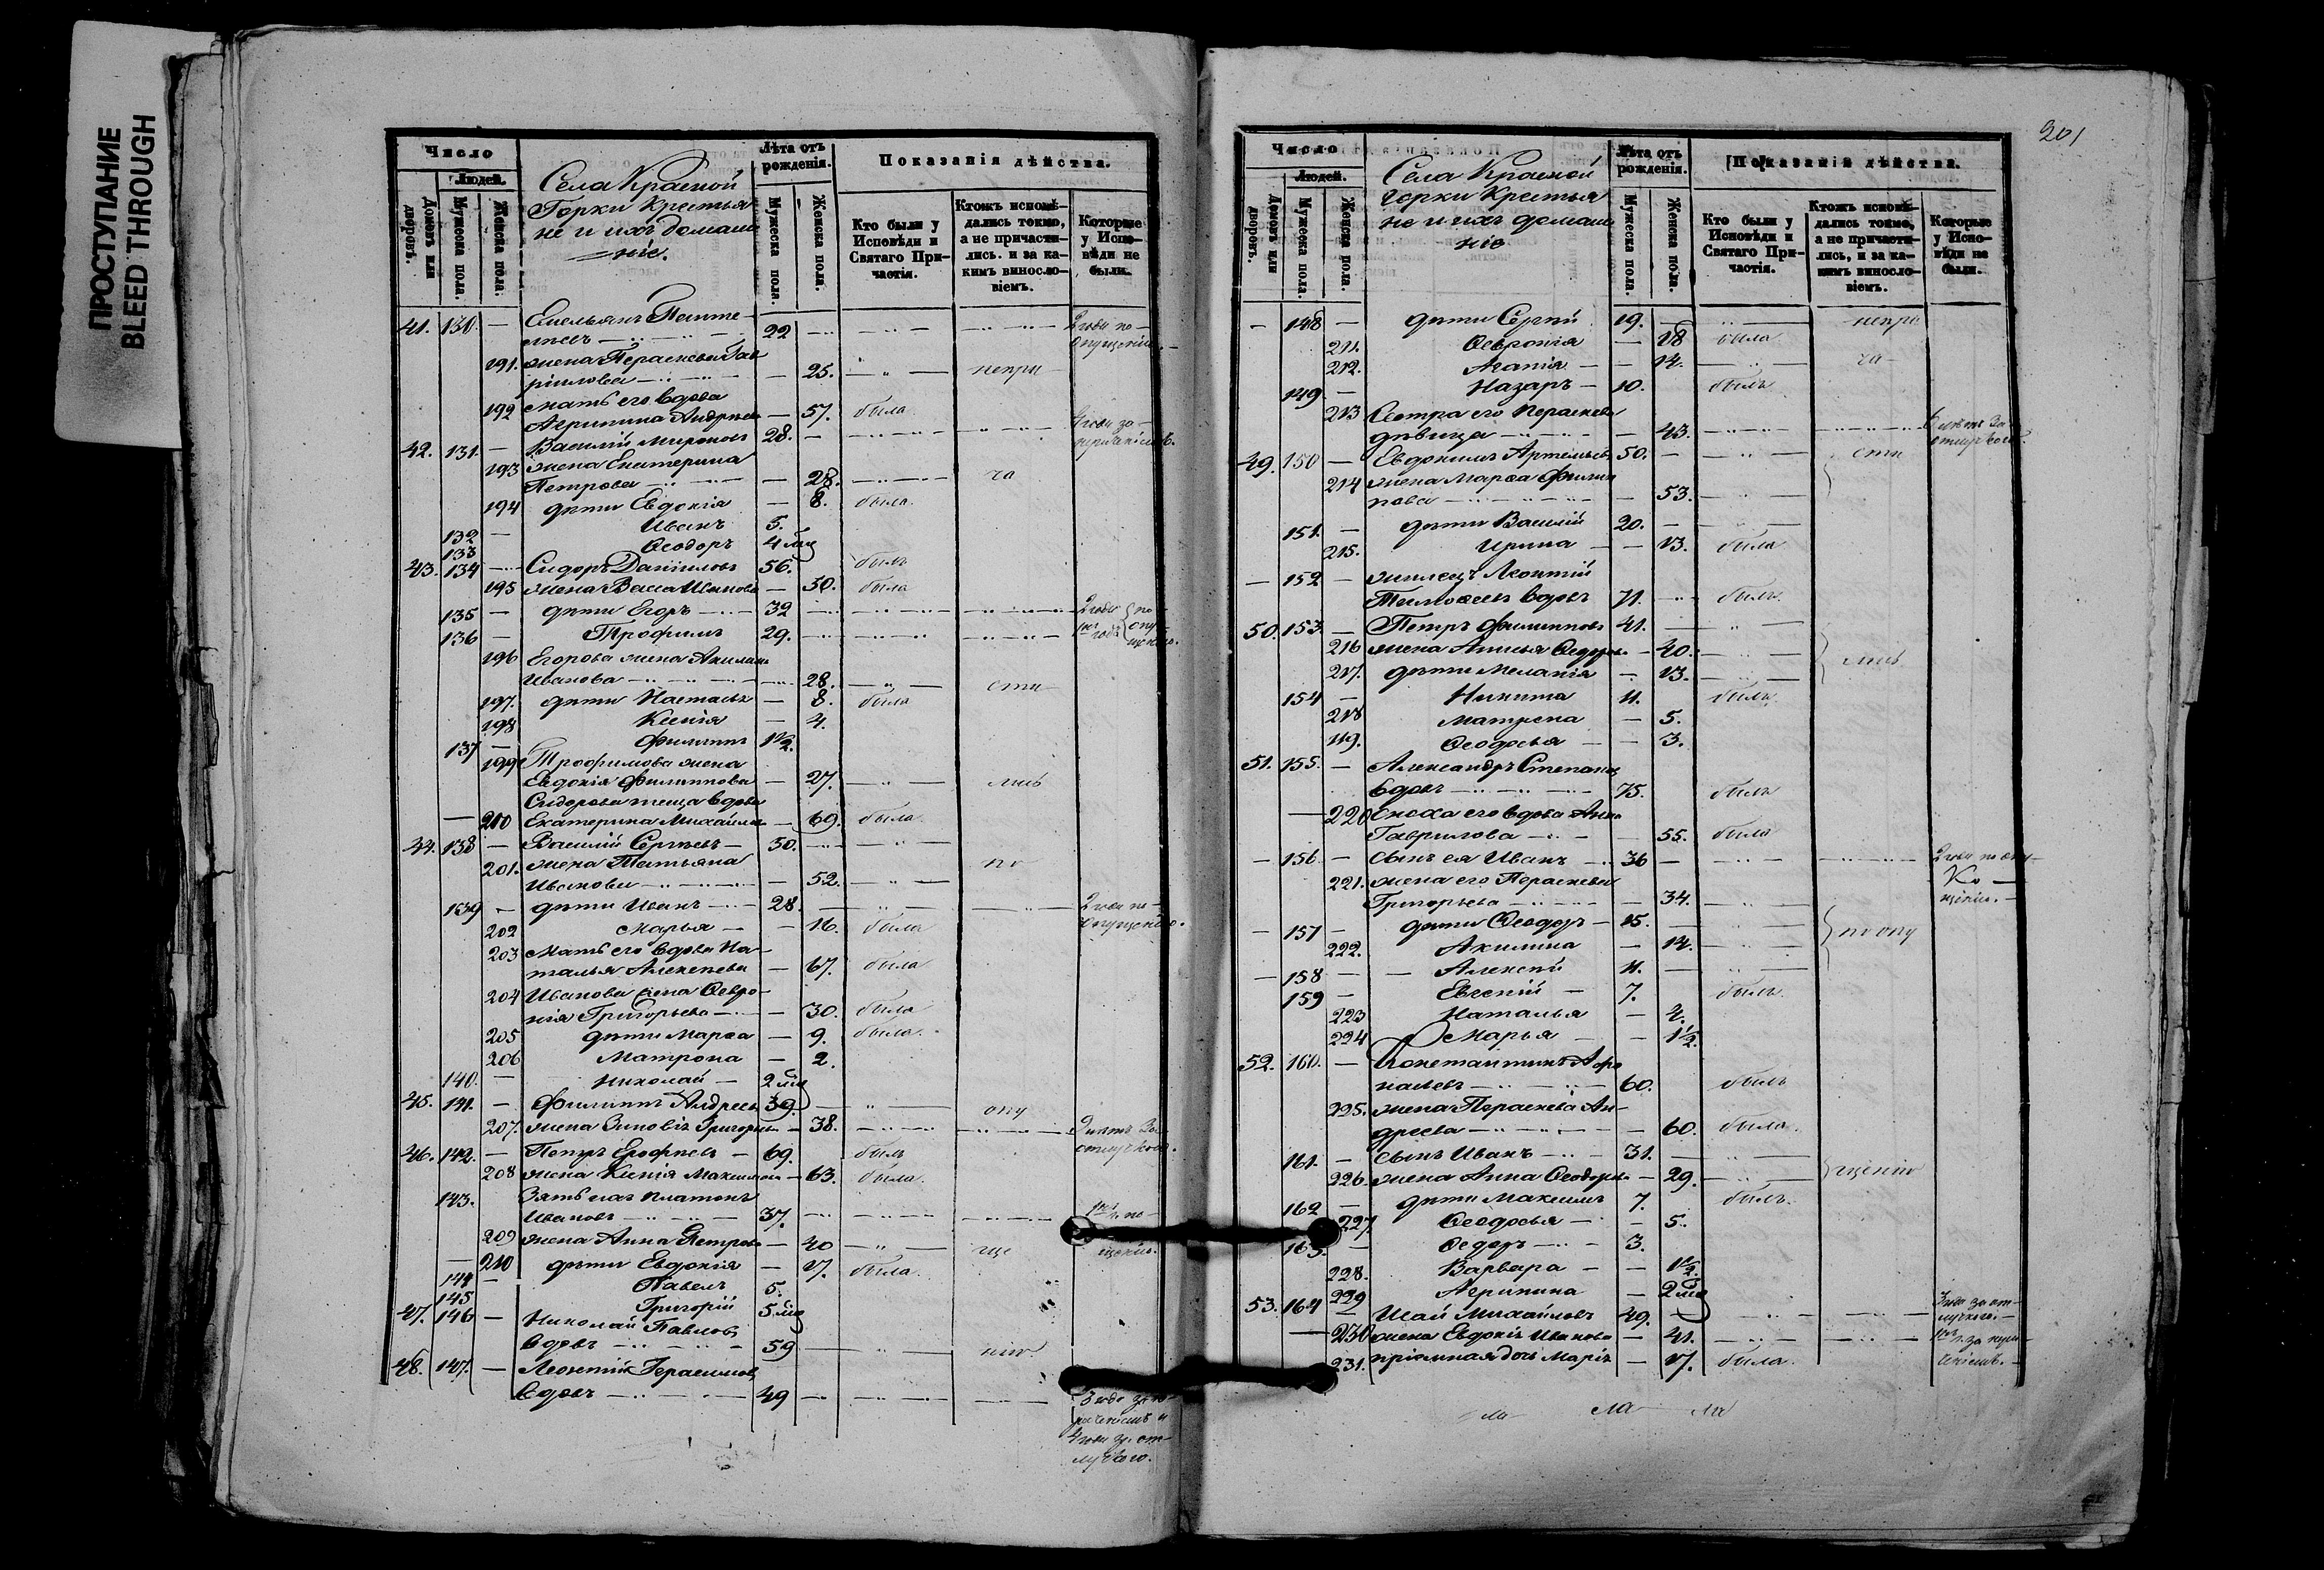 ПРОСТУПАНИЕ
BLEED THROUGH
Число
Людей.
Домовъ или дворовъ.
Мужеска пола.
Женска пола.
Села Красной
Горки Крестья
не и ихъ домаш
ніе.
Лѣта отъ рожденія.
Мужеска пола.
Женска пола.
Показанія дѣйства.
Кто были у Исповѣди и Святаго Причастія.
Ктожъ исповѣдались токмо, а не причастились. и за какимъ винословіемъ.
Которые у Исповѣди не были.
41. 130. — Емельянъ
22 2 года по
опущенію
191. жена Параскева Гав
рiилова — 25. непри
192 мать его вдова
Агрипина Андреева — 57. была
42. 131. — Василій Мироновъ 28. —
193 жена Екатерина
Петрова — 28. ча
194 дѣти Евдокія — 8. была
132 — Иванъ 5.
133 Ѳеодоръ 4 мѣс
43. 134 — Сидоръ Данiиловъ 56. былъ
195 жена Васса Иванова — 50. была
135 — дѣти Егоръ — 32 2 года по
136 — Трофимъ 29. опу
196 Егорова жена Акилина
Иванова — 28. сти
197. дѣти Настасья — 8. была
198 Ксенія — 4.
137 — Филиппъ 1½.
199 Трофимова жена
Евдокія Филиппова — 27. лись
Сидорова теща вдова
200 Екатерина Михайлова — 69. была
44. 138 — Василій Сергѣевъ — 50.
201. жена Татьяна
Иванова — 52. по
139 — дѣти Иванъ — 28. 2 года по
202 Марья — 16. была опущенію.
203 Мать его вдова На
талья Алексѣева — 67. была
204 Иванова жена Февро
нія Григорьева — 30. была
205 дѣти Марѳа — 9. была.
206 Матрона — 2.
140. — Николай — 2 мѣс
45. 141. — Филиппъ Андреевъ 39. опу
207. жена Зиновія Григорьева — 38.
46. 142. — Петръ Ерофѣевъ — 69. былъ отлучкою.
208 жена Ксенія Максимова — 63. была.
143. Зять ихъ Платонъ
Ивановъ — 37.
209 жена Анна Петрова — 40 ще
210 дѣти Евдокія — 17. была.
144 — Павелъ 5.
145 Григорій 5 мѣс
47. 146 — Николай Павловъ
вдовъ — 59 нію.
48. 147. — Леонтій Герасимовъ
вдовъ — 49 3 года
4 года за от
лучкою.
201
Число
Людей.
Домовъ или дворовъ.
Мужеска пола.
Женска пола.
Села Красной
Горки Крестья
не и ихъ домаш
ніе
Лѣта отъ рожденія.
Мужеска пола.
Женска пола.
Показанія дѣйства.
Кто были у Исповѣди и Святаго Причастія.
Ктожъ исповѣдались токмо, а не причастились, и за какимъ винословіемъ.
Которые у Исповѣди не были.
— 148 — дѣти Сергѣй 19. — непри
211. Февронія — 18 была
212. Агапія — 14. ча
149 — Назаръ — 10. былъ
213 Сестра его Параскева
дѣвица — 43. отлучкою
49. 150 — Евдокимъ Артемьевъ 50. — сти
214 жена Марѳа Филип
пова — 53.
151. — дѣти Василій 20. —
215. Ирина — 13. была
— 152 — жилецъ Леонтій
Тимоѳеевъ вдовъ 71. былъ.
50. 153. — Петръ Филипповъ 41.
216 жена Анисья Ѳедорова — 40. лись
217. дѣти Меланія — 13.
154 — Никита 11. былъ
218 Матрена — 5.
119. Ѳеодосья — 3.
51. 155. — Александръ Степановъ
вдовъ — 75. былъ
220 Сноха его вдова Анна
Гаврилова — 55. была
— 156. — сынъ ея Иванъ — 36 — 2 года по опу
221. жена его Параскева
Григорьева — 34. щенію.
— 157 — дѣти Ѳеодоръ — 15. по опу
222. Акилина — 14.
— 158 — Алексѣй 11.
159 — Евгеній — 7. былъ
223 Наталья — 4.
224 Марья — 1½.
52. 160. — Константинъ Афа
насьевъ — 60. былъ
225. жена Параскева Ан
дреева — 60. была.
161. — сынъ Иванъ — 31. —
226. жена Анна Ѳеодорова — 29. щенію
162 — дѣти Максимъ 7. былъ.
227. Ѳеодосья — 5.
163. — Ѳедоръ — 3.
228. Варвара — 1½.
229 Агрипина — 2 мѣс
53. 164 — Исай Михайловъ 49. 3 года за от
лучкою. —
230 жена Евдокія Иванова — 41.
231. пріемная дочь Марія — 17. была.